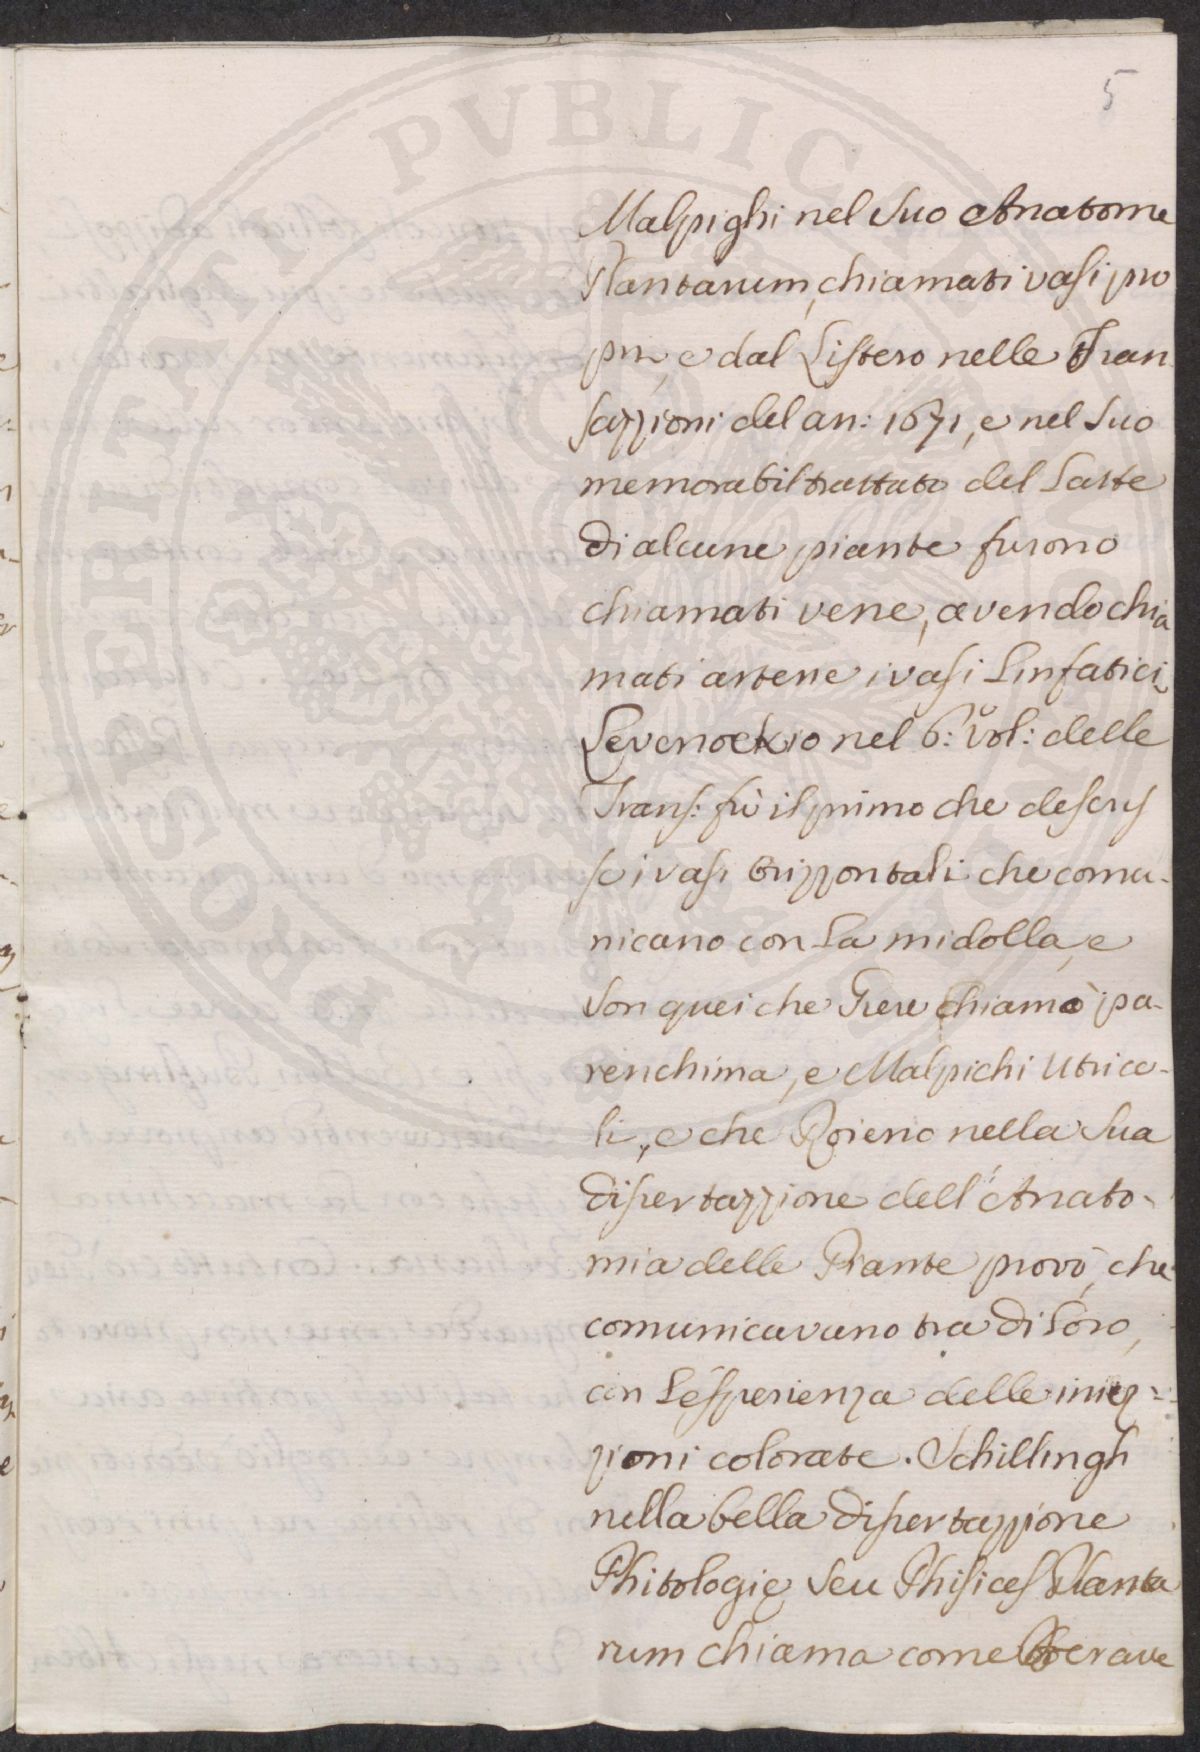 5
Malpighi nel suo Anatome
Plantarum, chiamati vasi pro
prii, e dal Listero nelle Tran
sazzioni del an: 1671, e nel suo
memorabil trattato del Latte
di alcune piante furono
chiamati vene, avendo chia
mati arterie i vasi Linfatici.
Levenoekio nel 6:º vol: delle
Trans: fù il primo che descris
se i vasi orizzontali che comu-
nicano con la midolla, e
son quei che Greu chiamò pa-
renchima, e Malpichi Utrico-
li, e che Roieno nella sua
dissertazzione dell'Anato-
mia delle Piante provò, che
comunicavano tra di loro,
con l'esperienza delle iniez-
zioni colorate. Schillingh
nella bella dissertazzione
Phitologię seu Phisices Planta
rum chiama come Boerave
PROSPERITATI PVBLICAE